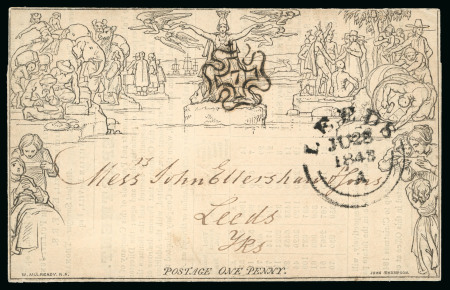 LEEDS
JU 28
1843
A
Messrs John Ellershaw & Sons
Leeds
Yks
POSTAGE ONE PENNY.
W. MULREADY, R.A.
JOHN THOMPSON